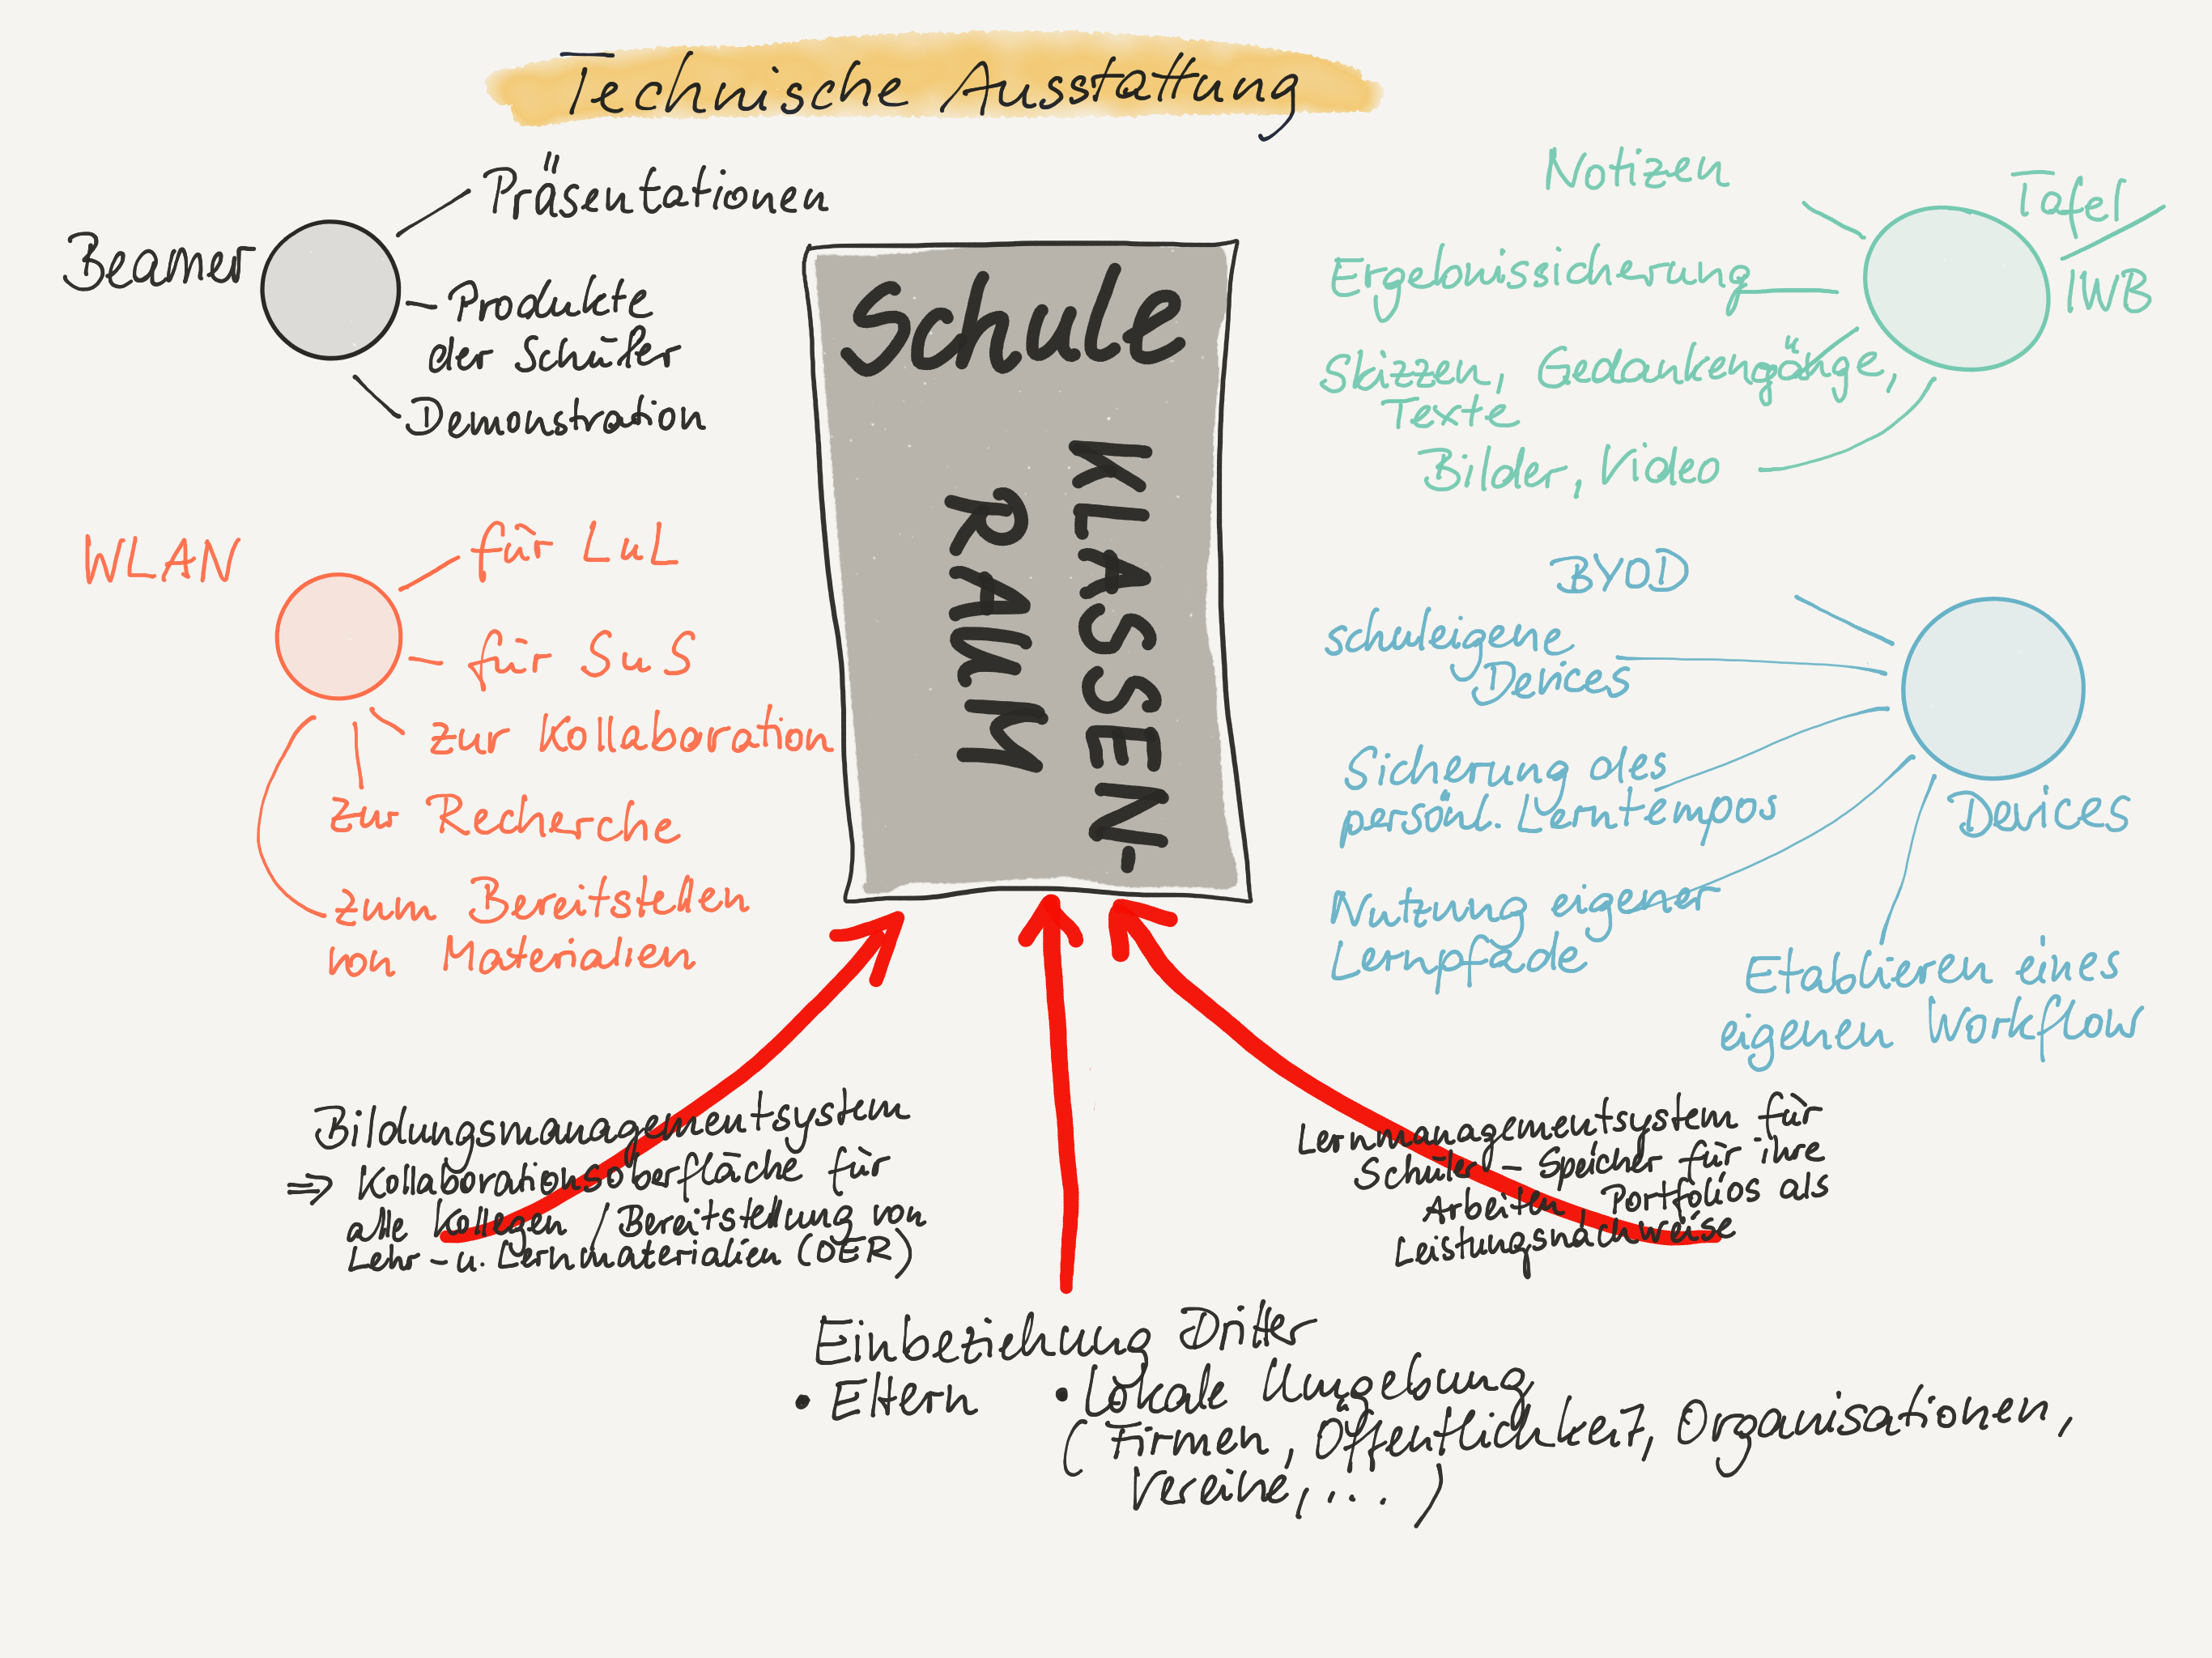 Technische Ausstattung
Beamer
Präsentationen
Produkte
der Schüler
Demonstration
WLAN
für LuL
für SuS
zur Kollaboration
zur Recherche
zum Bereitstellen
von Materialien
Schule
KLASSEN-
RAUM
Notizen
Tafel/
IWB
Ergebnissicherung
Skizzen, Gedankengänge,
Texte
Bilder, Video
BYOD
schuleigene
Devices
Sicherung des
persönl. Lerntempos
Nutzung eigener
Lernpfade
Devices
Etablieren eines
eigenen Workflow
Bildungsmanagementsystem
⇒ Kollaborationsoberfläche für
alle Kollegen / Bereitstellung von
Lehr- u. Lernmaterialien (OER)
Lernmanagementsystem für
Schüler - Speicher für ihre
Arbeiten, Portfolios als
Leistungsnachweise
Einbeziehung Dritter
• Eltern • Lokale Umgebung
(Firmen, Öffentlichkeit, Organisationen,
Vereine, ...)